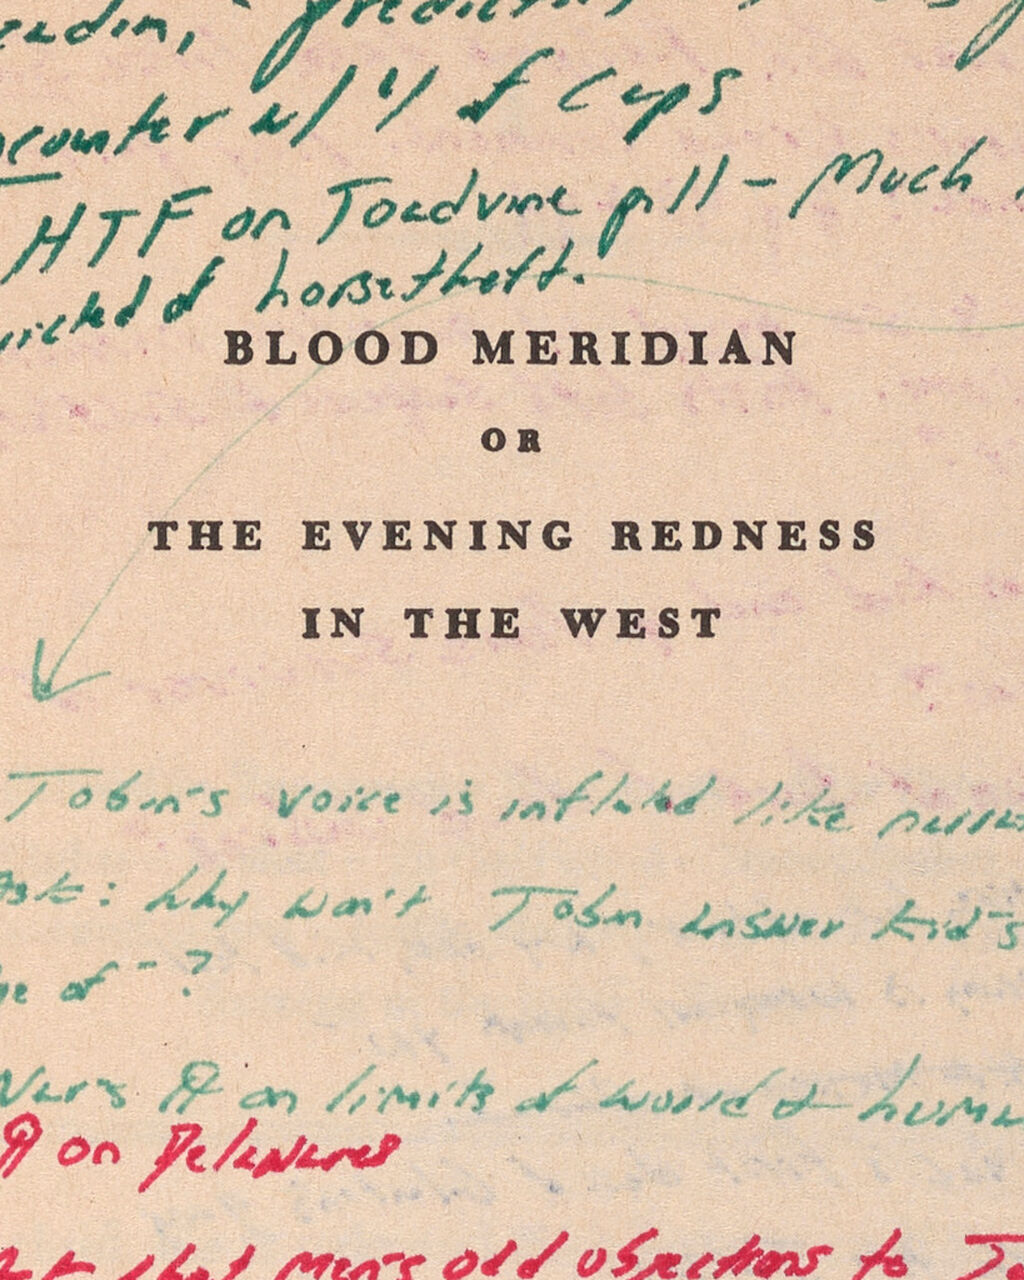 encounter w/ of Caps
HTF on Toadvine pill – Much
of horsetheft.
BLOOD MERIDIAN
OR
THE EVENING REDNESS
IN THE WEST
Tobin's voice is inflected like
Ask: Why won't Tobin answer kid's
of - ?
on limits of world &
on Delawares
that man's old objections to